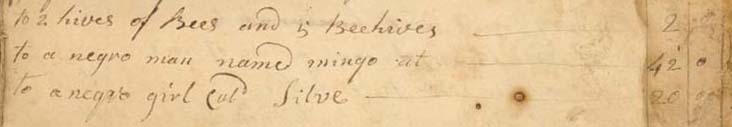 to 2 hives of Bees and 5 Beehives 2
to a negro man named mingo at 42 0
to a negro girl Cald Silve 20